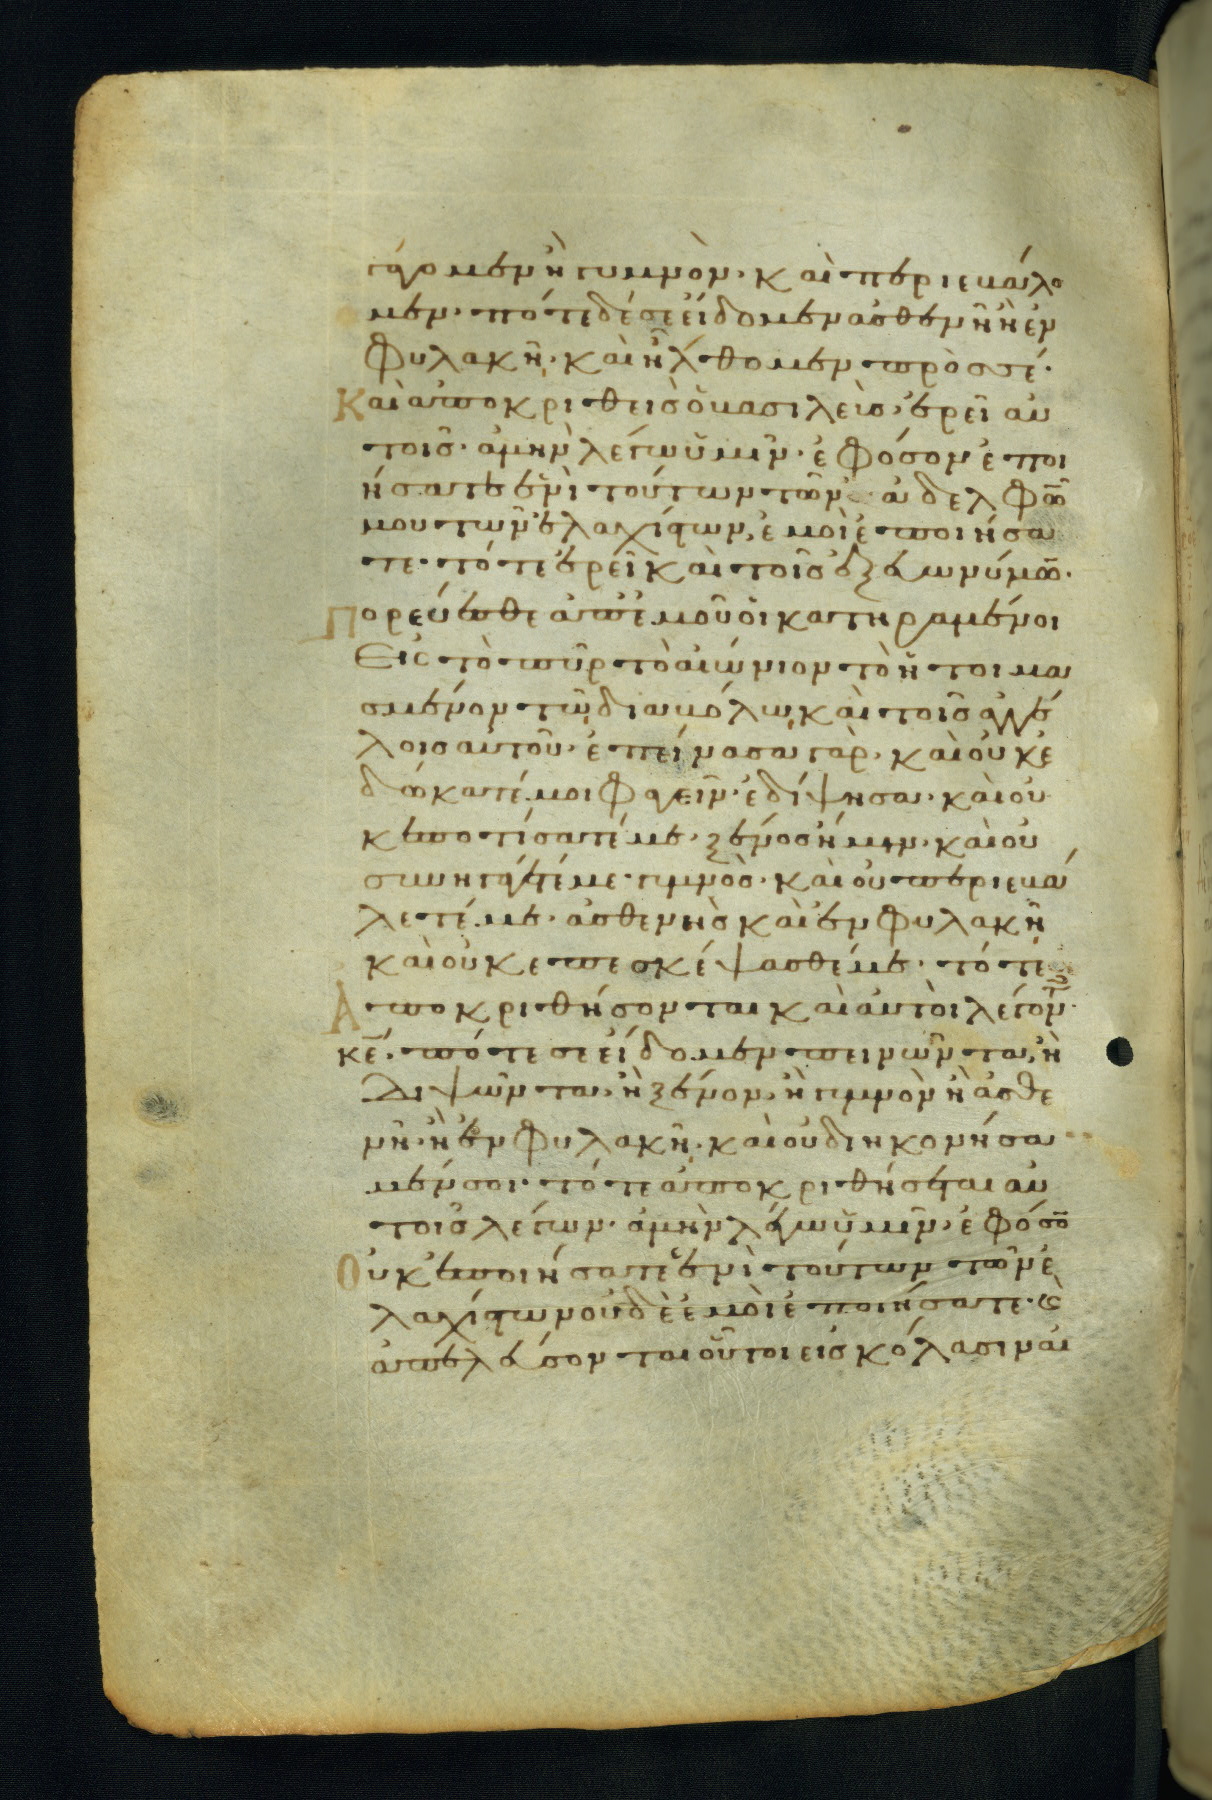 γάγομεν ἢ γυμνὸν· καὶ περιεβάλο
μεν· πότε δέ σε εἴδομεν ἀσθενῆ ἢ ἐν
φυλακῇ· καὶ ἤλθομεν πρὸς σέ·
Καὶ ἀποκριθεὶς ὁ βασιλεὺς, ἐρεῖ αυ
τοῖς· ἀμὴν λέγω ὑμῖν· ἐφόσον ἐποι
ήσατε ἑνὶ τούτων τῶν ἀδελφῶ̅
μου τῶν ἐλαχίστων, ἐμοὶ ἐποιήσα
τε· τότε ἐρεῖ καὶ τοῖς ἐξ εὐωνύμω̅·
Πορεύεσθε ἀπ' ἐμοῦ οἱ κατηραμένοι
Εἰς τὸ πῦρ τὸ αἰώνιον τὸ ἡτοιμα
σμένον τῷ διαβόλῳ, καὶ τοῖς ἀγγέ
λοις αὐτοῦ· ἐπείνασα γὰρ· καὶ οὐκ ἐ
δώκατέ μοι φαγεῖν· ἐδίψησα· καὶ οὐ
κ ἐποτίσατέ με· ξένος ἤμην· καὶ οὐ
συνηγάγετέ με· γυμνὸς· καὶ οὐ περιεβά
λετέ με· ἀσθενὴς καὶ ἐν φυλακῇ
καὶ οὐκ ἐπεσκέψασθέ με· τότε
Ἀποκριθήσονται καὶ αὐτοὶ λέγον̅τ·
κ̅ε̅· πότε σε εἴδομεν πεινῶντα, ἢ
Διψῶντα, ἢ ξένον, ἢ γυμνὸν ἢ ἀσθε
νῆ· ἢ ἐν φυλακῇ· καὶ οὐ διηκονήσα
μέν σοι· τότε ἀποκριθήσεται αὐ
τοῖς λέγων· ἀμὴν λέγω ὑμῖν· ἐφόσο̅
Οὐκ ἐποιήσατε ἑνὶ τούτων τῶν ἐ
λαχίστων οὐδὲ ἐμοὶ ἐποιήσατε· ϗ̀
ἀπελεύσονται οὗτοι εἰς κόλασιν αἰ